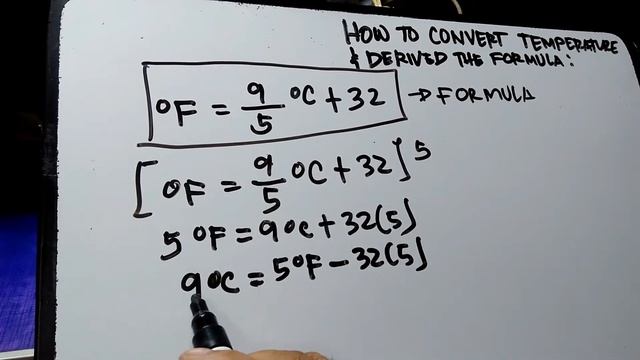 HOW TO CONVERT TEMPERATURE
& DERIVED THE FORMULA:
°F = 9/5 °C + 32 → FORMULA
[°F = 9/5 °C + 32] 5
5 °F = 9°C + 32(5)
9°C = 5°F - 32(5)